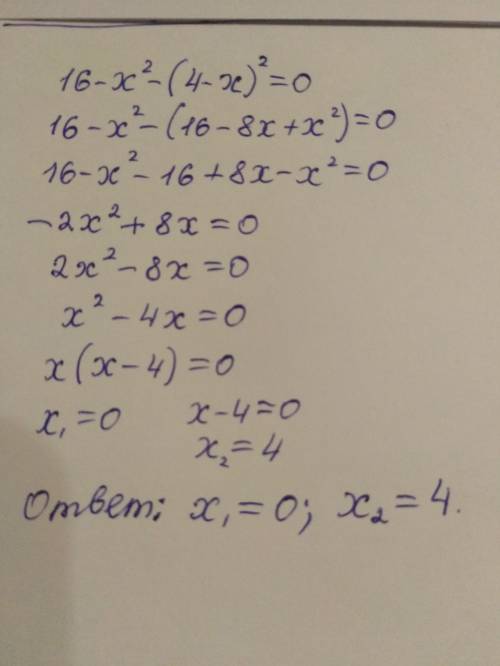 16-x²-(4-x)²=0
16-x²-(16-8x+x²)=0
16-x²-16+8x-x²=0
-2x²+8x=0
2x²-8x=0
x²-4x=0
x(x-4)=0
x₁=0 x-4=0
x₂=4
Ответ: x₁=0; x₂=4.